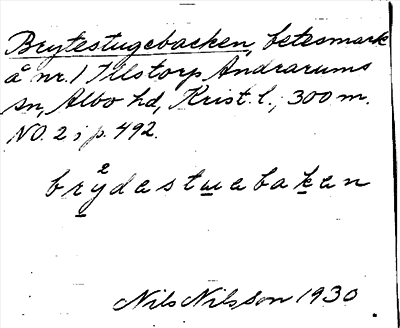 Brytestugebacken, betesmark
å nr. 1 Ilstorp, Andrarums
sn, Albo hd, Krist. l., 300 m.
NO. 2 i p. 492.
bry²dastuabakan
Nils Nilsson 1930.